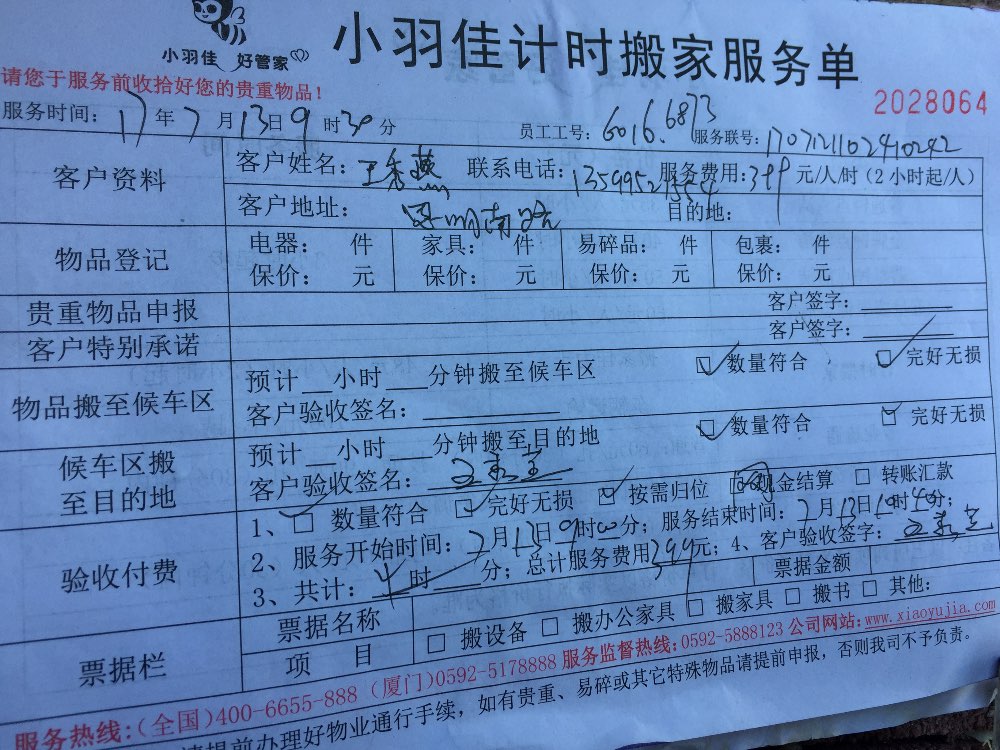 小羽佳 好管家
小羽佳计时搬家服务单
请您于服务前收拾好您的贵重物品!
2028064
服务时间: 17年7月13日9时30分 员工工号: 6016.6873 服务联号: 1707121102410242
客户资料 客户姓名: 王秀燕 联系电话: 服务费用: 399 元/人/时 (2小时起/人)
客户地址: 南路 目的地:
物品登记 电器: 件 家具: 件 易碎品: 件 包裹: 件
保价: 元 保价: 元 保价: 元 保价: 元
贵重物品申报 客户签字:
客户特别承诺 客户签字:
物品搬至候车区 预计__小时___分钟搬至候车区 数量符合 完好无损
客户验收签名:
候车区搬至目的地 预计__小时___分钟搬至目的地 数量符合 完好无损
客户验收签名:
验收付费 1、□ 数量符合 □ 完好无损 □ 按需归位 □ 现金结算 □ 转账汇款
2、服务开始时间: 7月13日9时00分; 服务结束时间: 7月13日10时40分;
3、共计: 时 分; 总计服务费用399元; 4、客户验收签字:
票据栏 票据名称 票据金额
项 目 □ 搬设备 □ 搬办公家具 □ 搬家具 □ 搬书 □ 其他:
服务热线:(全国)400-6655-888 (厦门)0592-5178888 服务监督热线:0592-5888123 公司网站:www.xiaoyujia.com
请提前办理好物业通行手续，如有贵重、易碎或其它特殊物品请提前申报，否则我司不予负责。